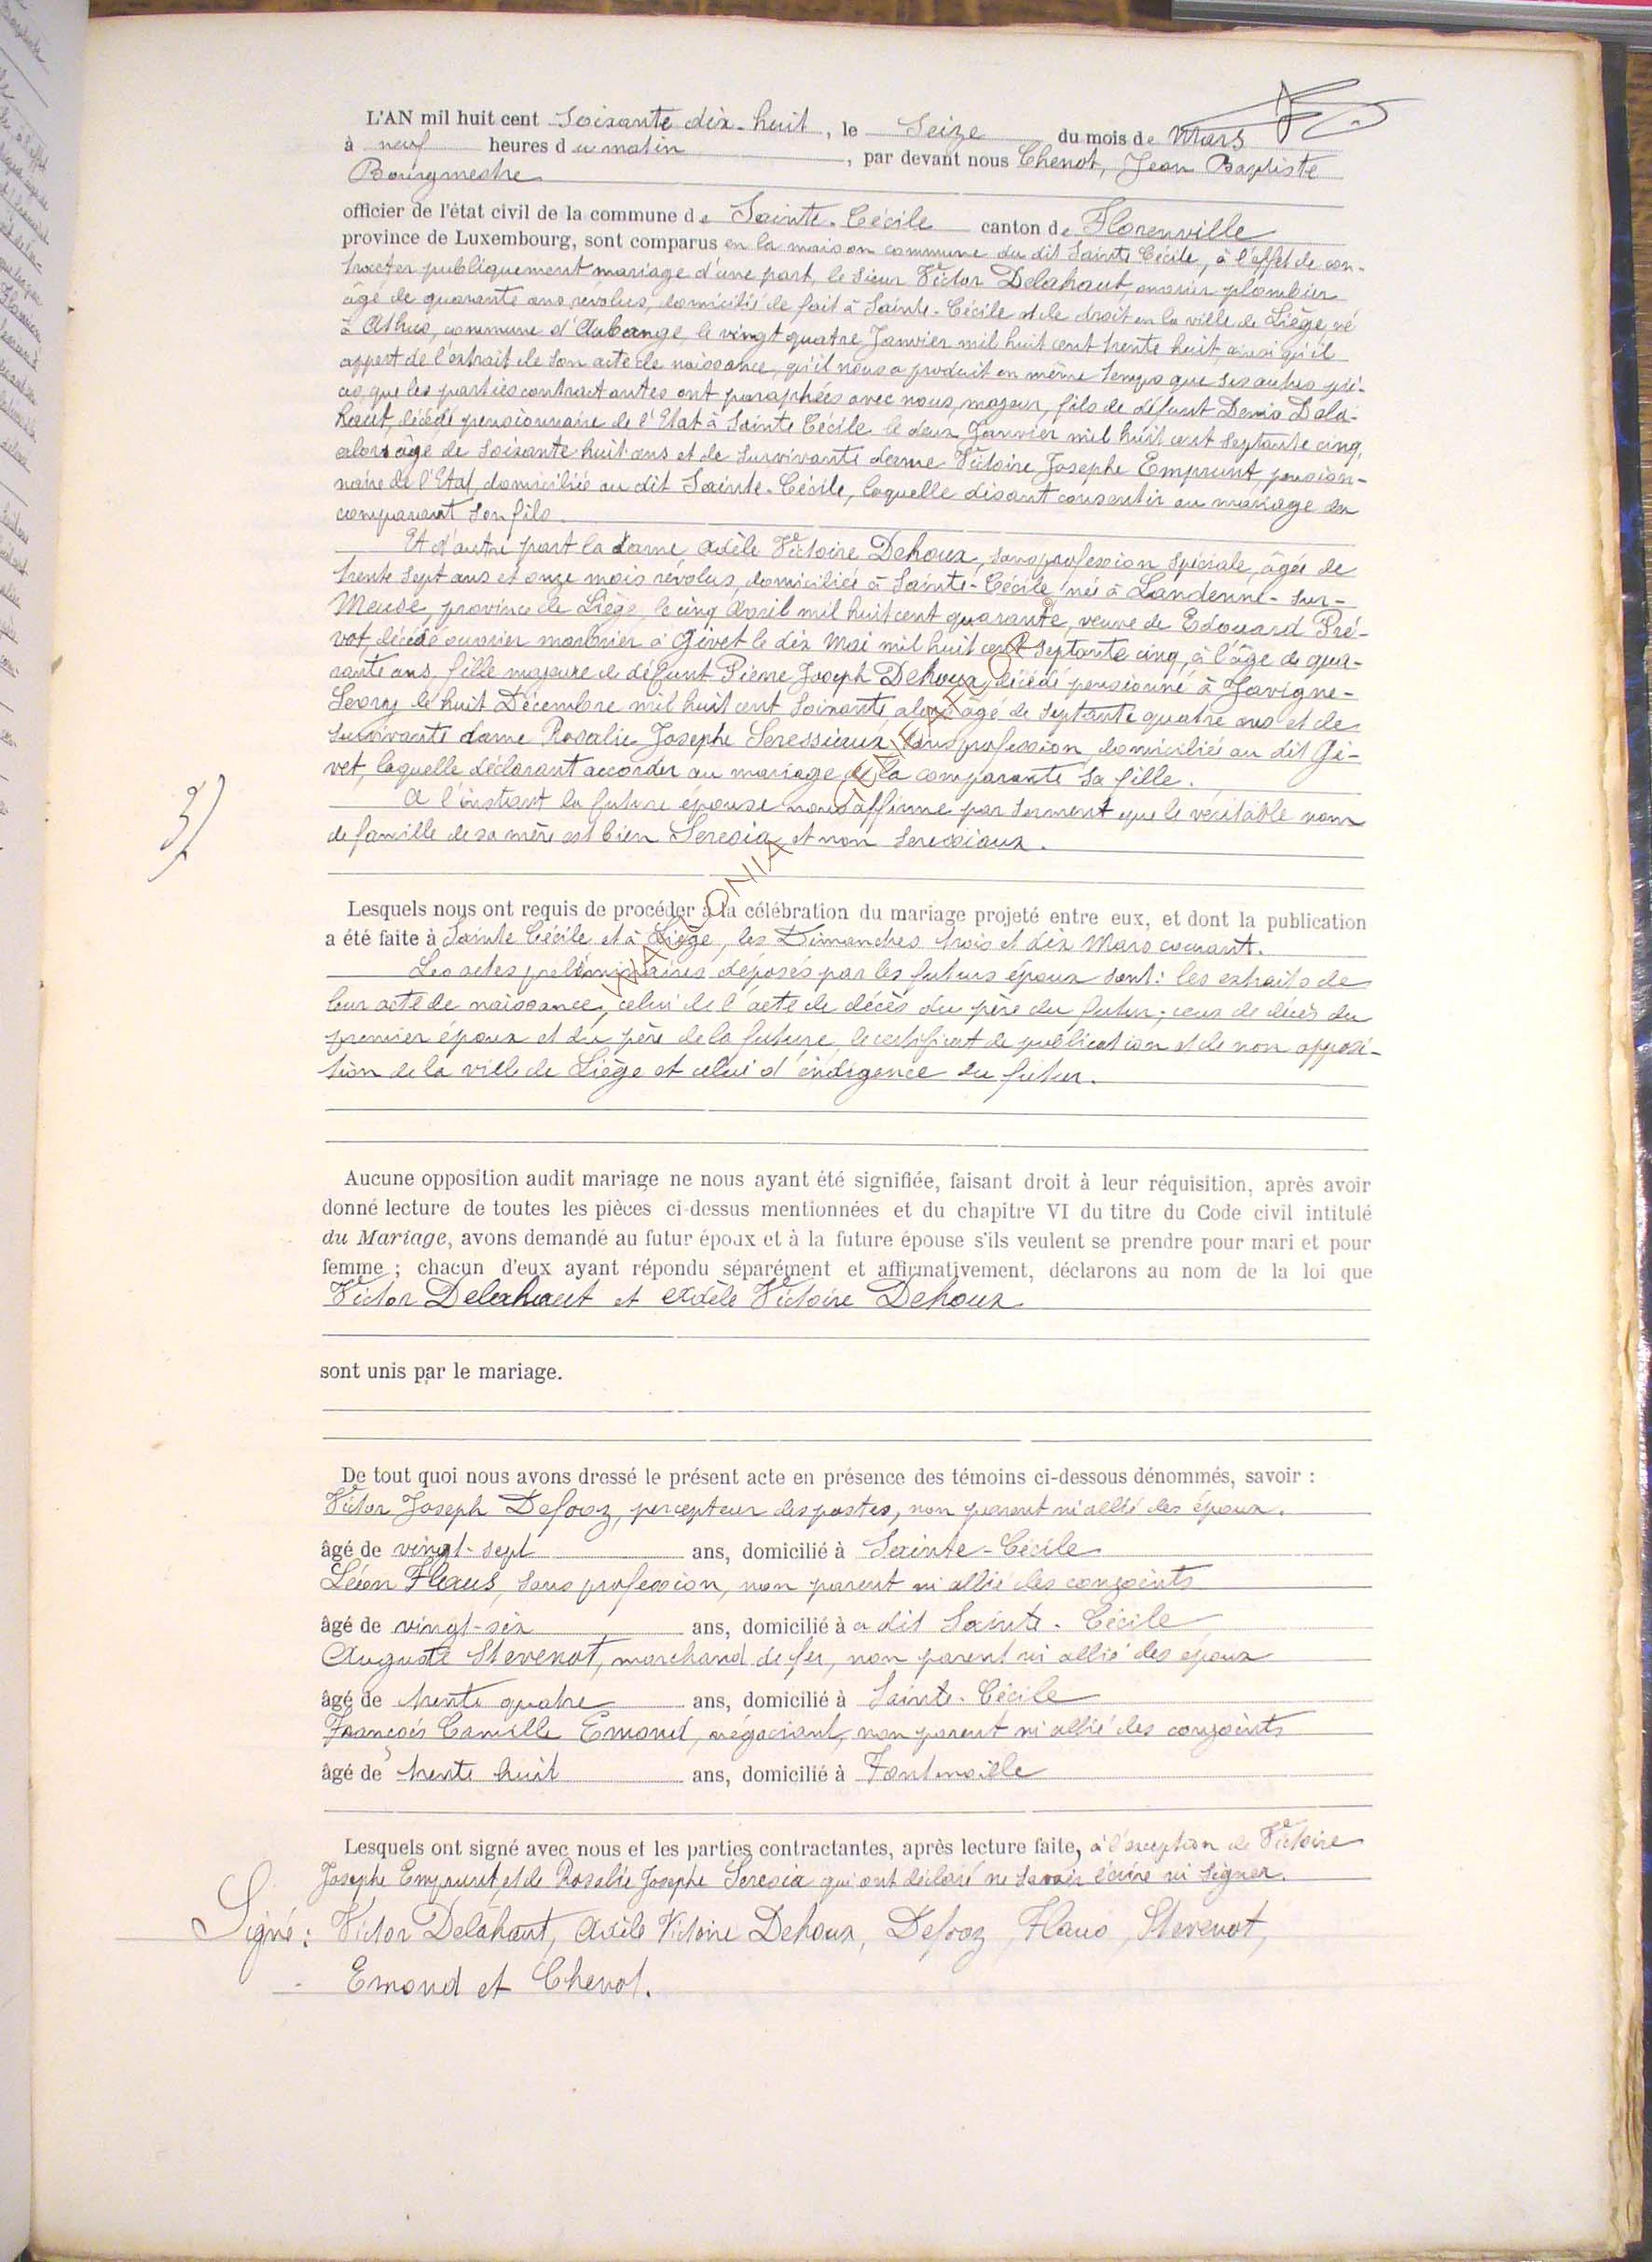 L'AN mil huit cent Soixante dix-huit, le Seize du mois de Mars
à neuf heures du matin, par devant nous Chenot, Jean Baptiste
Bourgmestre
officier de l'état civil de la commune de Sainte-Cécile canton de Florenville
province de Luxembourg, sont comparus en la maison commune du dit Sainte Cécile, à l'effet de con-
tracter publiquement mariage d'une part, le sieur Victor Delahaut, ouvrier plombier
âgé de quarante ans révolus, domicilié de fait à Sainte-Cécile et de droit en la ville de Liège, né
à Athus, commune d'Aubange, le vingt quatre Janvier mil huit cent trente huit ainsi qu'il
appert de l'extrait de son acte de naissance, qu'il nous a produit en même temps que ses autres piè-
ces, que les parties contractantes ont paraphées avec nous, majeur, fils de défunt Denis Dela-
haut, décédé pensionnaire de l'Etat à Sainte Cécile le deux Janvier mil huit cent septante cinq,
alors âgé de soixante huit ans et de survivante dame Victoire Josephe Emprunt, pension-
naire de l'Etat, domiciliée au dit Sainte-Cécile, laquelle disant consentir au mariage du
comparant son fils.
Et d'autre part la dame Adèle Victoire Dehoux, sans profession spéciale, âgée de
trente sept ans et onze mois révolus, domiciliée à Sainte-Cécile, née à Landenne-sur-
Meuse, province de Liège, le cinq Avril mil huit cent quarante, veuve de Edouard Pré-
vot, décédé ouvrier marbrier à Givet le dix Mai mil huit cent septante cinq, à l'âge de qua-
rante ans, fille majeure de défunt Pierre Joseph Dehoux, décédé pensionné à Javigne-
Sevry le huit Décembre mil huit cent soixante, alors âgé de septante quatre ans et de
survivante dame Rosalie Josephe Seressiaux, sans profession, domiciliée au dit Gi-
vet, laquelle déclarant accorder au mariage de la comparante sa fille.
A l'instant la future épouse nous affirme par serment que le véritable nom
de famille de sa mère est bien Seresia et non seressiaux.
3)
WALLONIA
Lesquels nous ont requis de procéder à la célébration du mariage projeté entre eux, et dont la publication
a été faite à Sainte Cécile et à Liège, les Dimanches trois et dix Mars courant.
Les actes préliminaires déposés par les futurs époux sont: les extraits de
leur acte de naissance, celui de l'acte de décès du père du futur; ceux de décès du
premier époux et du père de la future, le certificat de publication et de non opposi-
tion de la ville de Liège et celui d'indigence du futur.
Aucune opposition audit mariage ne nous ayant été signifiée, faisant droit à leur réquisition, après avoir
donné lecture de toutes les pièces ci-dessus mentionnées et du chapitre VI du titre du Code civil intitulé
du Mariage, avons demandé au futur époux et à la future épouse s'ils veulent se prendre pour mari et pour
femme ; chacun d'eux ayant répondu séparément et affirmativement, déclarons au nom de la loi que
Victor Delahaut et Adèle Victoire Dehoux
sont unis par le mariage.
De tout quoi nous avons dressé le présent acte en présence des témoins ci-dessous dénommés, savoir :
Victor Joseph Defooz, percepteur des postes, non parent ni allié des époux.
âgé de vingt-sept ans, domicilié à Sainte-Cécile
Léon Flaus, sans profession, non parent ni allié des conjoints
âgé de vingt-six ans, domicilié à a dit Sainte-Cécile
Auguste Stevenot, marchand de fer, non parent ni allié des époux
âgé de trente quatre ans, domicilié à Sainte-Cécile
François Camille Emond, négociant, non parent ni allié des conjoints
âgé de trente huit ans, domicilié à Fontenoille
Lesquels ont signé avec nous et les parties contractantes, après lecture faite, à l'exception de Victoire
Josephe Emprunt et de Rosalie Josephe Seresia qui ont déclaré ne savoir écrire ni signer.
Signé: Victor Delahaut, Adèle Victoire Dehoux, Defooz, Flaus, Stevenot,
Emond et Chenot.